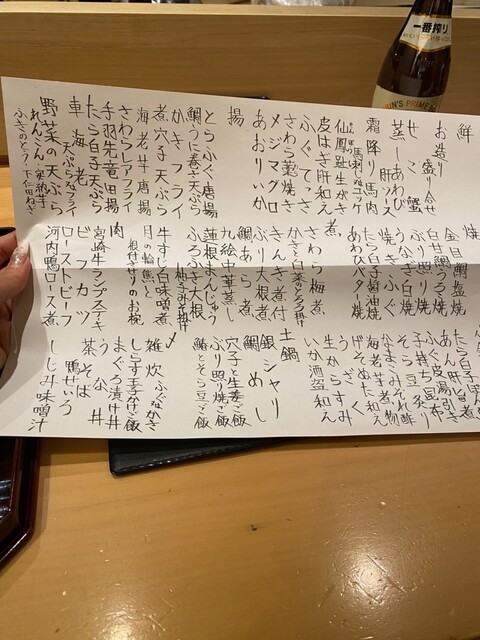 一番搾り
KIRIN'S PRIME
鮮
お造り盛り合せ
せこ蟹
蒸しあわび
肝ソース
霜降り馬肉
馬刺し
ユッケ
仙鳳趾生がき
皮はぎ肝和え
ふぐてっさ
さわら藁焼き
メジマグロ
あおりいか
揚
とらふぐ唐揚
鯛うに巻き天ぷら
かきフライ
煮穴子天ぷら
海老芋唐揚
さわらレアフライ
手羽先竜田揚
たら白子天ぷら
車海老
天ぷらorフライ
野菜の天ぷら
れんこん・
ふきのとう・下仁田ねぎ
焼
金目鯛塩焼
白甘鯛うろこ焼
ぶり照り焼
うなぎ白焼
焼きふぐ
たら白子醤油焼
あわびバター焼
煮
さわら梅煮
かきと白菜のとろみ掛け
きんき煮付
ぶり大根煮
鯛あら煮
九絵中華蒸し
蓮根まんじゅう
ふろふき大根
柚子みそ掛け
牛すじ白味噌煮
月の輪熊と
根付きせりのお椀
肉
宮崎牛ランプステーキ
ビフカツ
ローストビーフ
河内鴨ロース煮
たら白子
あん肝旨煮
ふぐ皮湯引き
子持ち昆布
そら豆炙り
なまこみぞれ酢
海老芋あん和え
げそぬた和え
うざく
生からすみ
いか酒盗和え
土鍋
銀シャリ
鯛めし
穴子と生姜ご飯
ぶり照り焼ご飯
鰆とそら豆ご飯
〆
雑炊 ふぐorかき
しらす玉子かけご飯
まぐろ漬け丼
うな丼
茶そば
鴨せいろ
しじみ味噌汁